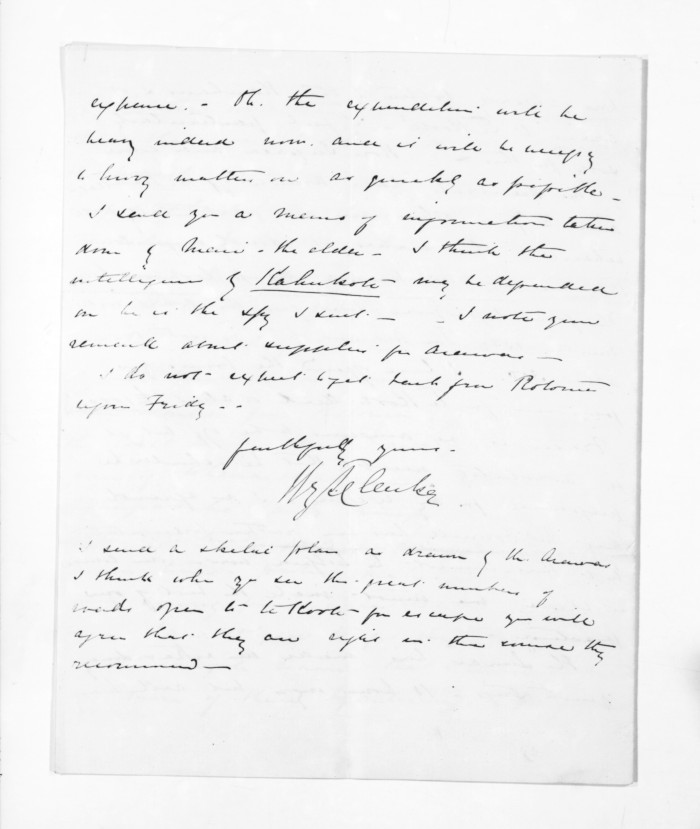 expense. - Oh. the expenditure will be
heavy indeed now. and it will be necessary
to hurry matters on as quickly as possible -
I send you a memo of information taken
down by - the elder - I think the
intelligence of Kahukoti may be depended
on he is the spy I sent - - I note your
remarks about supplies for Arawas -
I do not expect to get back from Rotorua
before Friday - -
faithfully yours -
Hy T Clarke
I send a skeleton plan as drawn by the Arawas
I think when you see the great numbers of
roads open to te Kooti for escape you will
agree that they are right in the course they
recommend -